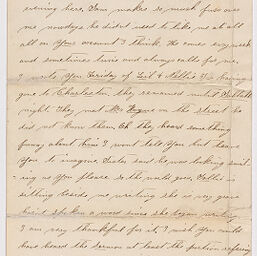 evening here. Sam makes so much fuss over
me nowadays he didn't used to like me at all
all on your account I think. He comes every week
and sometimes twice and always calls for me.
I wrote you Friday of Gert & Nellie having
gone to Charleston, they remained until
night. They met Mr. on the street he
did not know them they heard something
funny about him I wont tell you but leave
you to imagine, said he was looking
ing as you please so the world goes.
sitting beside me, writing she is very
hasn't spoken a word since she began writing
I am very thankful for it. I wish you could
have heard the sermon at least the portion refering